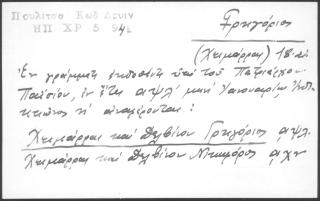 Πουλίτσα Κωδ Δρυιν
ΗΠ ΧΡ 5 94α
Γρηγόριος
(Χειμάρρας) 18 αι
Ἐν γράμματι ἐκδοθέντι ὑπὸ τοῦ Πατριάρχου
Παϊσίου, ἐν ἔτει αψλ΄ μηνὶ Ἰανουαρίῳ Ἰνδι
κτιῶνος η΄ ἀναφέρονται:
Χειμάρρας καὶ Δελβίνου Γρηγόριος αψλ
Χειμάρρας καὶ Δελβίνου Νικηφόρος αχν